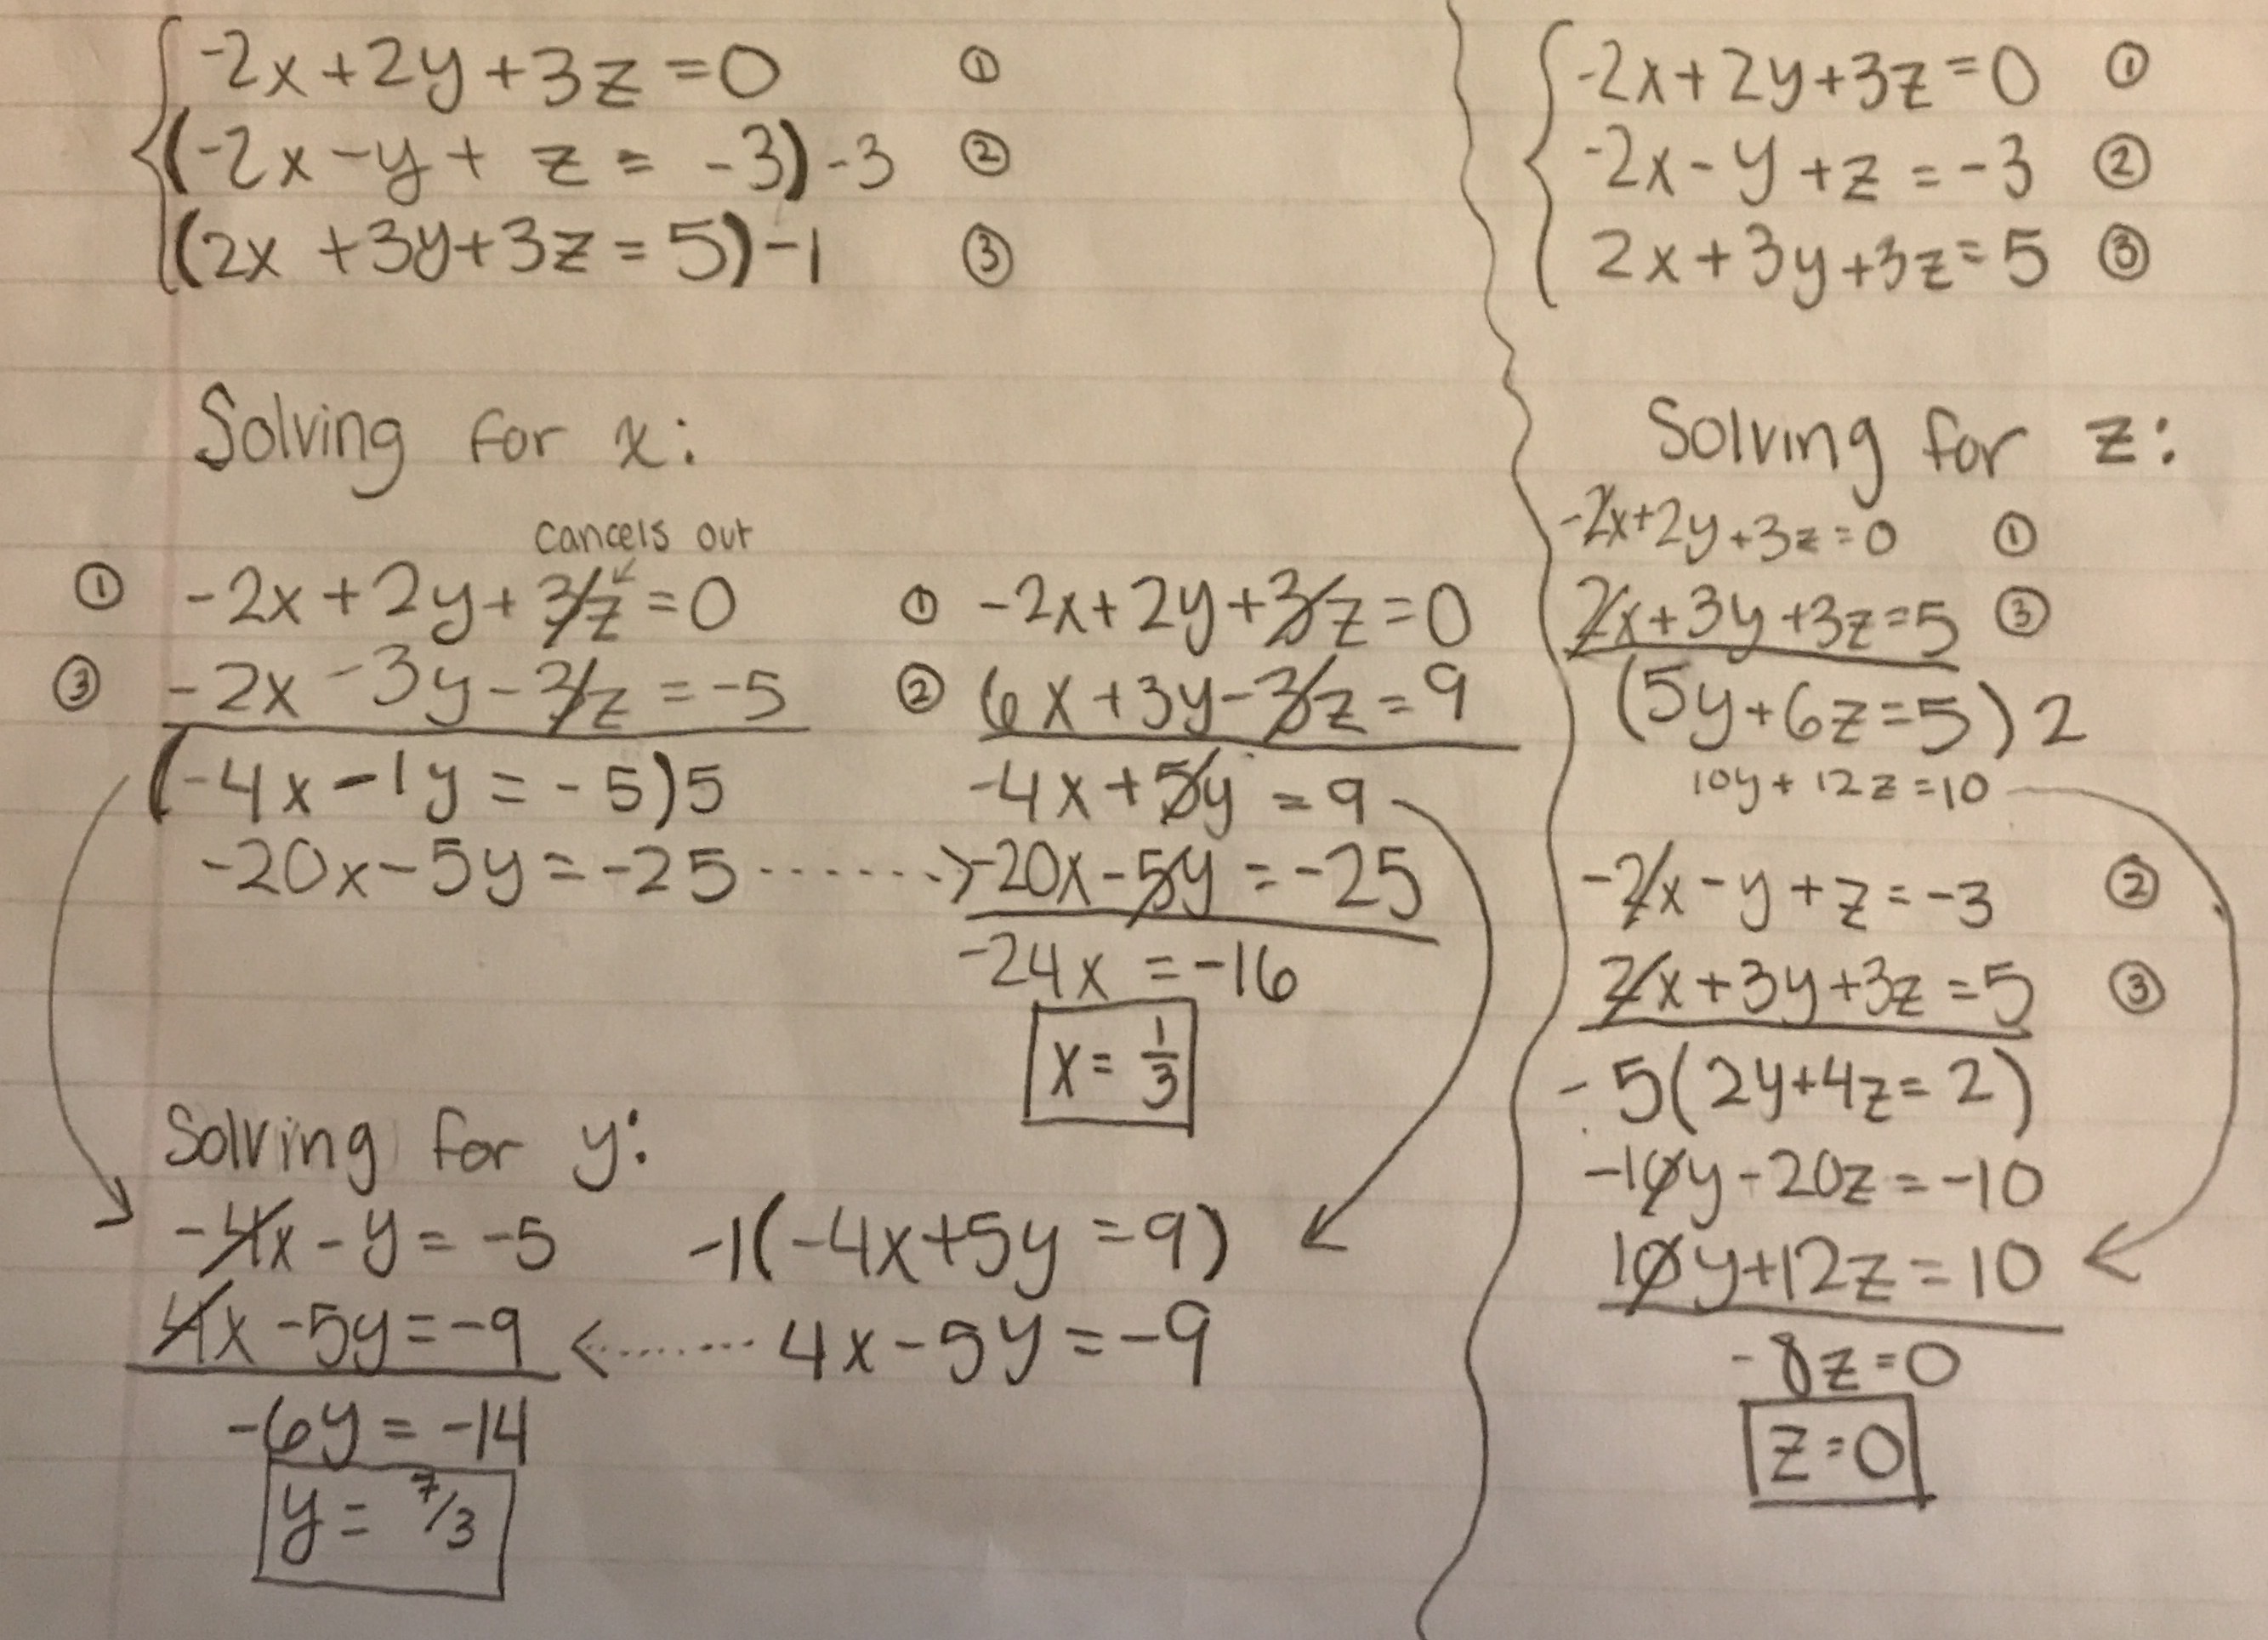 -2x+2y+3z=0 ①
(-2x-y+z=-3)-3 ②
(2x+3y+3z=5)-1 ③
Solving for x:
cancels out
① -2x+2y+3z=0
③ -2x-3y-3z=-5
(-4x-1y=-5)5
-20x-5y=-25
① -2x+2y+3z=0
② 6x+3y-3z=9
-4x+5y=9
-20x-5y=-25
-24x=-16
x=1/3
Solving for y:
-4x-y=-5
4x-5y=-9
-6y=-14
y=7/3
-1(-4x+5y=9)
4x-5y=-9
-2x+2y+3z=0 ①
-2x-y+z=-3 ②
2x+3y+3z=5 ③
Solving for z:
-2x+2y+3z=0 ①
2x+3y+3z=5 ③
(5y+6z=5)2
10y+12z=10
-2x-y+z=-3 ②
2x+3y+3z=5 ③
-5(2y+4z=2)
-10y-20z=-10
10y+12z=10
-8z=0
z=0